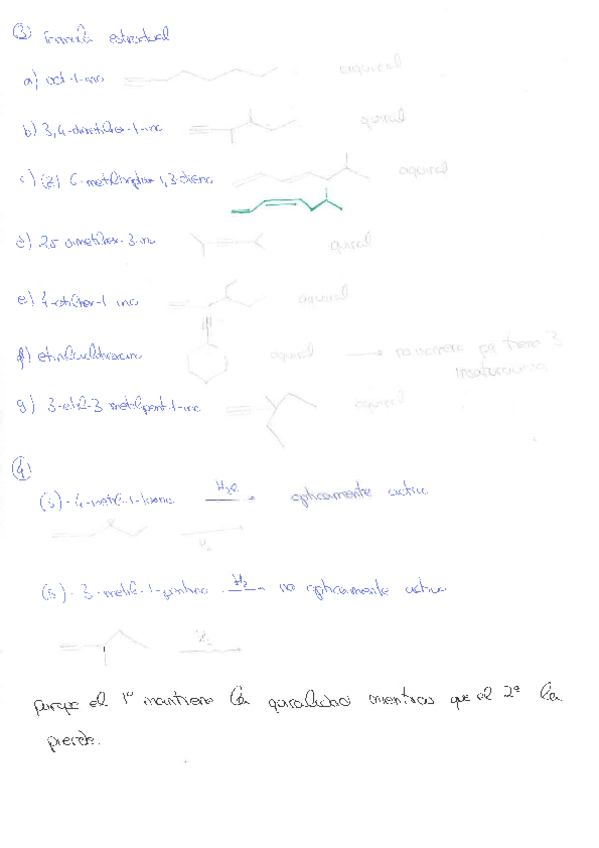 ③ isomería estructural
a) oct-1-ino aquiral
b) 3,4-dimetilhex-1-ino quiral
c) (Z) 6-metilhepta-1,3-dieno aquiral
d) 2,5 dimetilhex-3-ino quiral
e) 4-etilhex-1-ino aquiral
f) etinilciclohexano aquiral → no isomero pq tiene 3 insaturaciones
g) 3-etil-3 metilpent-1-ino aquiral
④
(S)-4-metil-1-hexino H₂ → opticamente activo
H₂
(S)-3-metil-1-pentino H₂ → no opticamente activo
H₂
porque el 1º mantiene la quiralidad mientras que el 2º la
pierde.